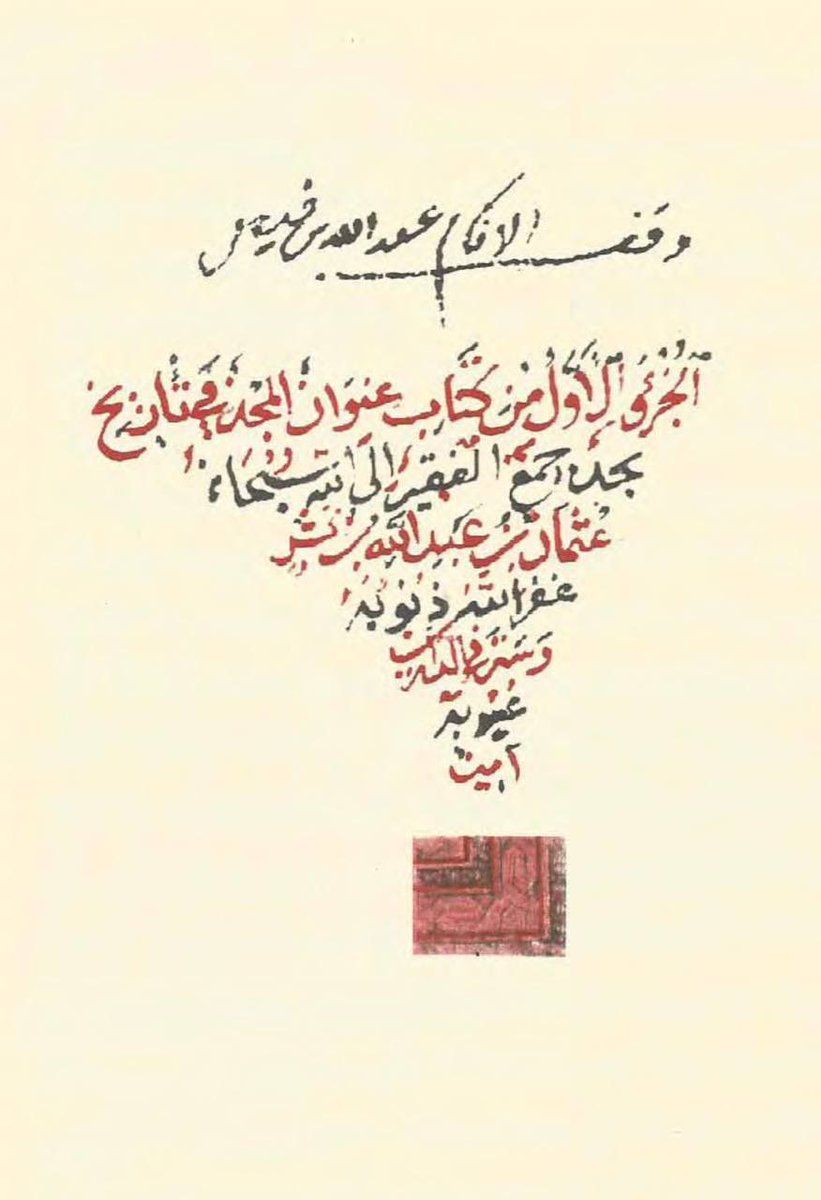 وقف الامام عبد الله بن فيصل
الجُزْءُ الْاَوَّلُ مِنْ كِتَاب عِنوَان المَجْد في تَاريخ
نجد جمع الفقير الى الله سُبْحَانهُ
عُثمَان بن عَبدِ الله بن بشر
غفر الله ذنوبهُ
وَسَتَر في الدارين
عُيُوبه
آمين